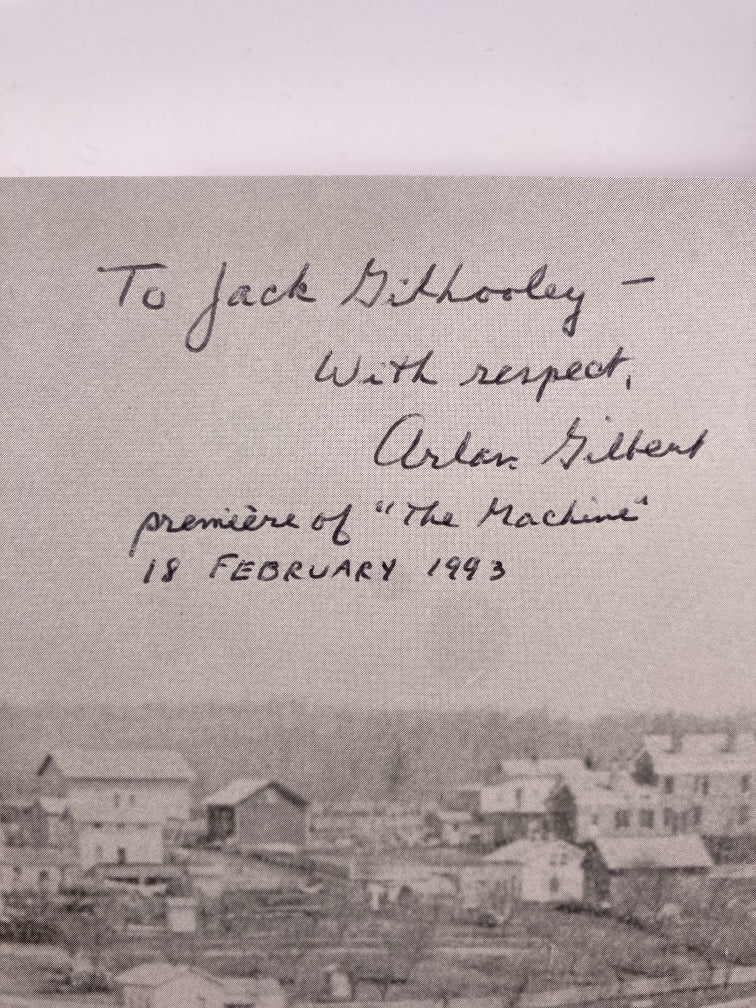 To Jack Gilhooley —
With respect,
Arlan Gilbert
première of "The Machine"
18 FEBRUARY 1993